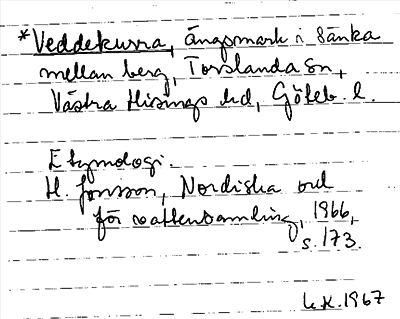 *Veddekurra, ängsmark i sänka
mellan berg, Torslanda sn,
Västra Hisings hd, Göteb. l.
Etymologi.
H. Jonsson, Nordiska ord
för vattensamling, 1966,
s. 173.
1967